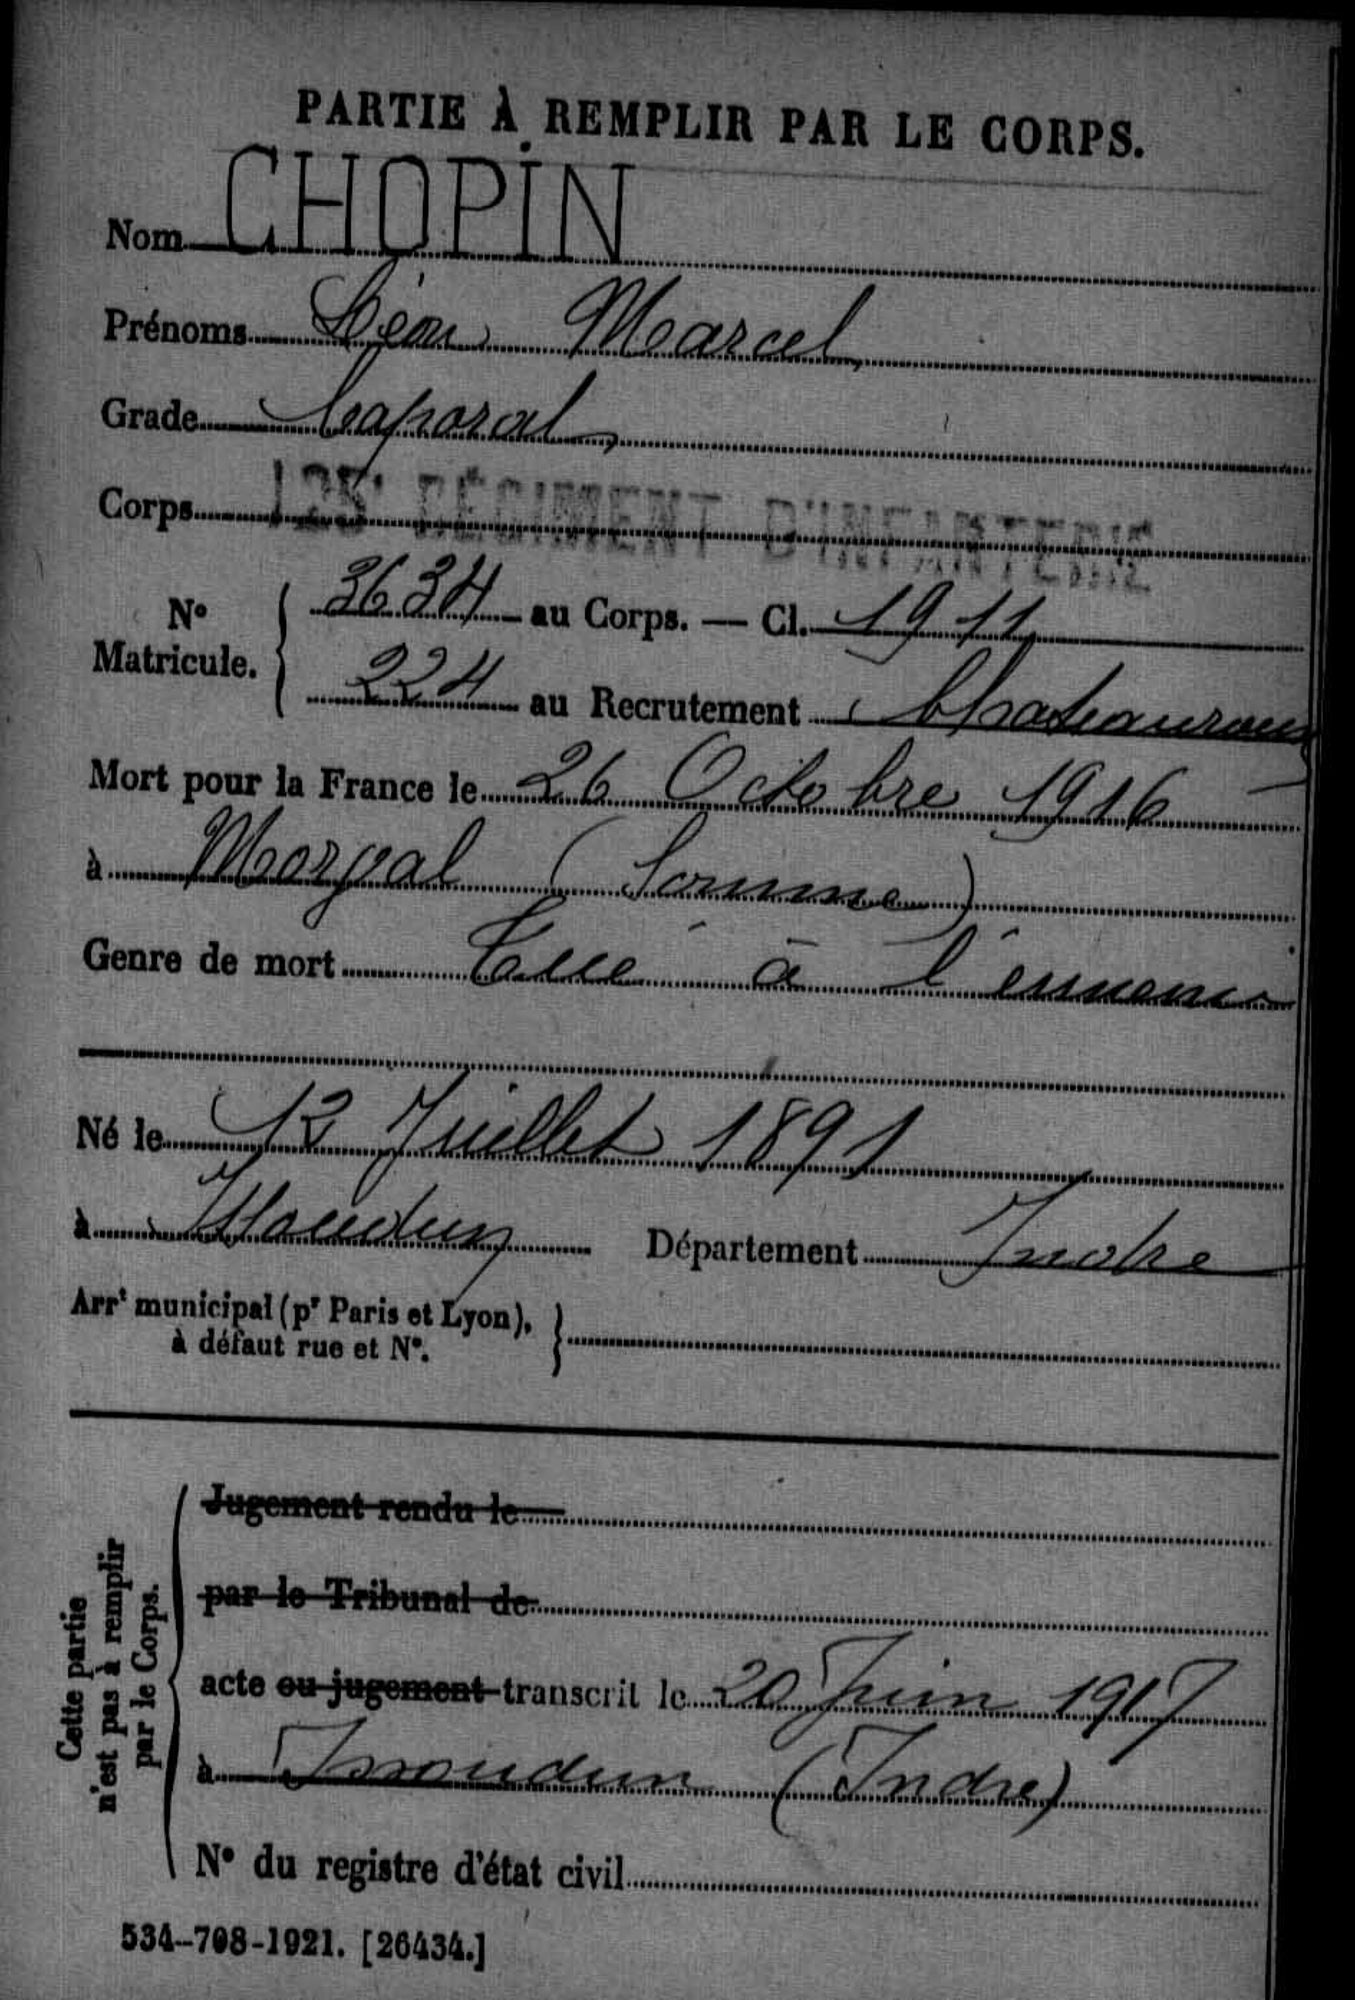 PARTIE À REMPLIR PAR LE CORPS.
Nom CHOPIN
Prénoms Léon Marcel
Grade Caporal
Corps 125e RÉGIMENT D'INFANTERIE
No Matricule. 3634 au Corps. — Cl. 1911
224 au Recrutement Chateauroux
Mort pour la France le 26 Octobre 1916
à Morval (Somme)
Genre de mort Tué à l'ennemi
Né le 12 Juillet 1891
à Issoudun Département Indre
Arrt municipal (pr Paris et Lyon), à défaut rue et No.
Cette partie n'est pas à remplir par le Corps.
Jugement rendu le
par le Tribunal de
acte ou jugement transcrit le 20 Juin 1917
à Issoudun (Indre)
No du registre d'état civil
534-708-1921. [26434.]